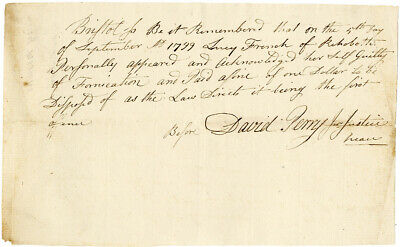 Bristol ss Be it Remembered that on the 5th Day
of September AD 1799 Lucy French of Rehoboth
Personally appeared and acknowledged her Self Guilty
of Fornication and Paid a fine of one Dollar to be
Disposed of as the Law Directs it being the first
offence
Before David Perry Jr Justice
peace